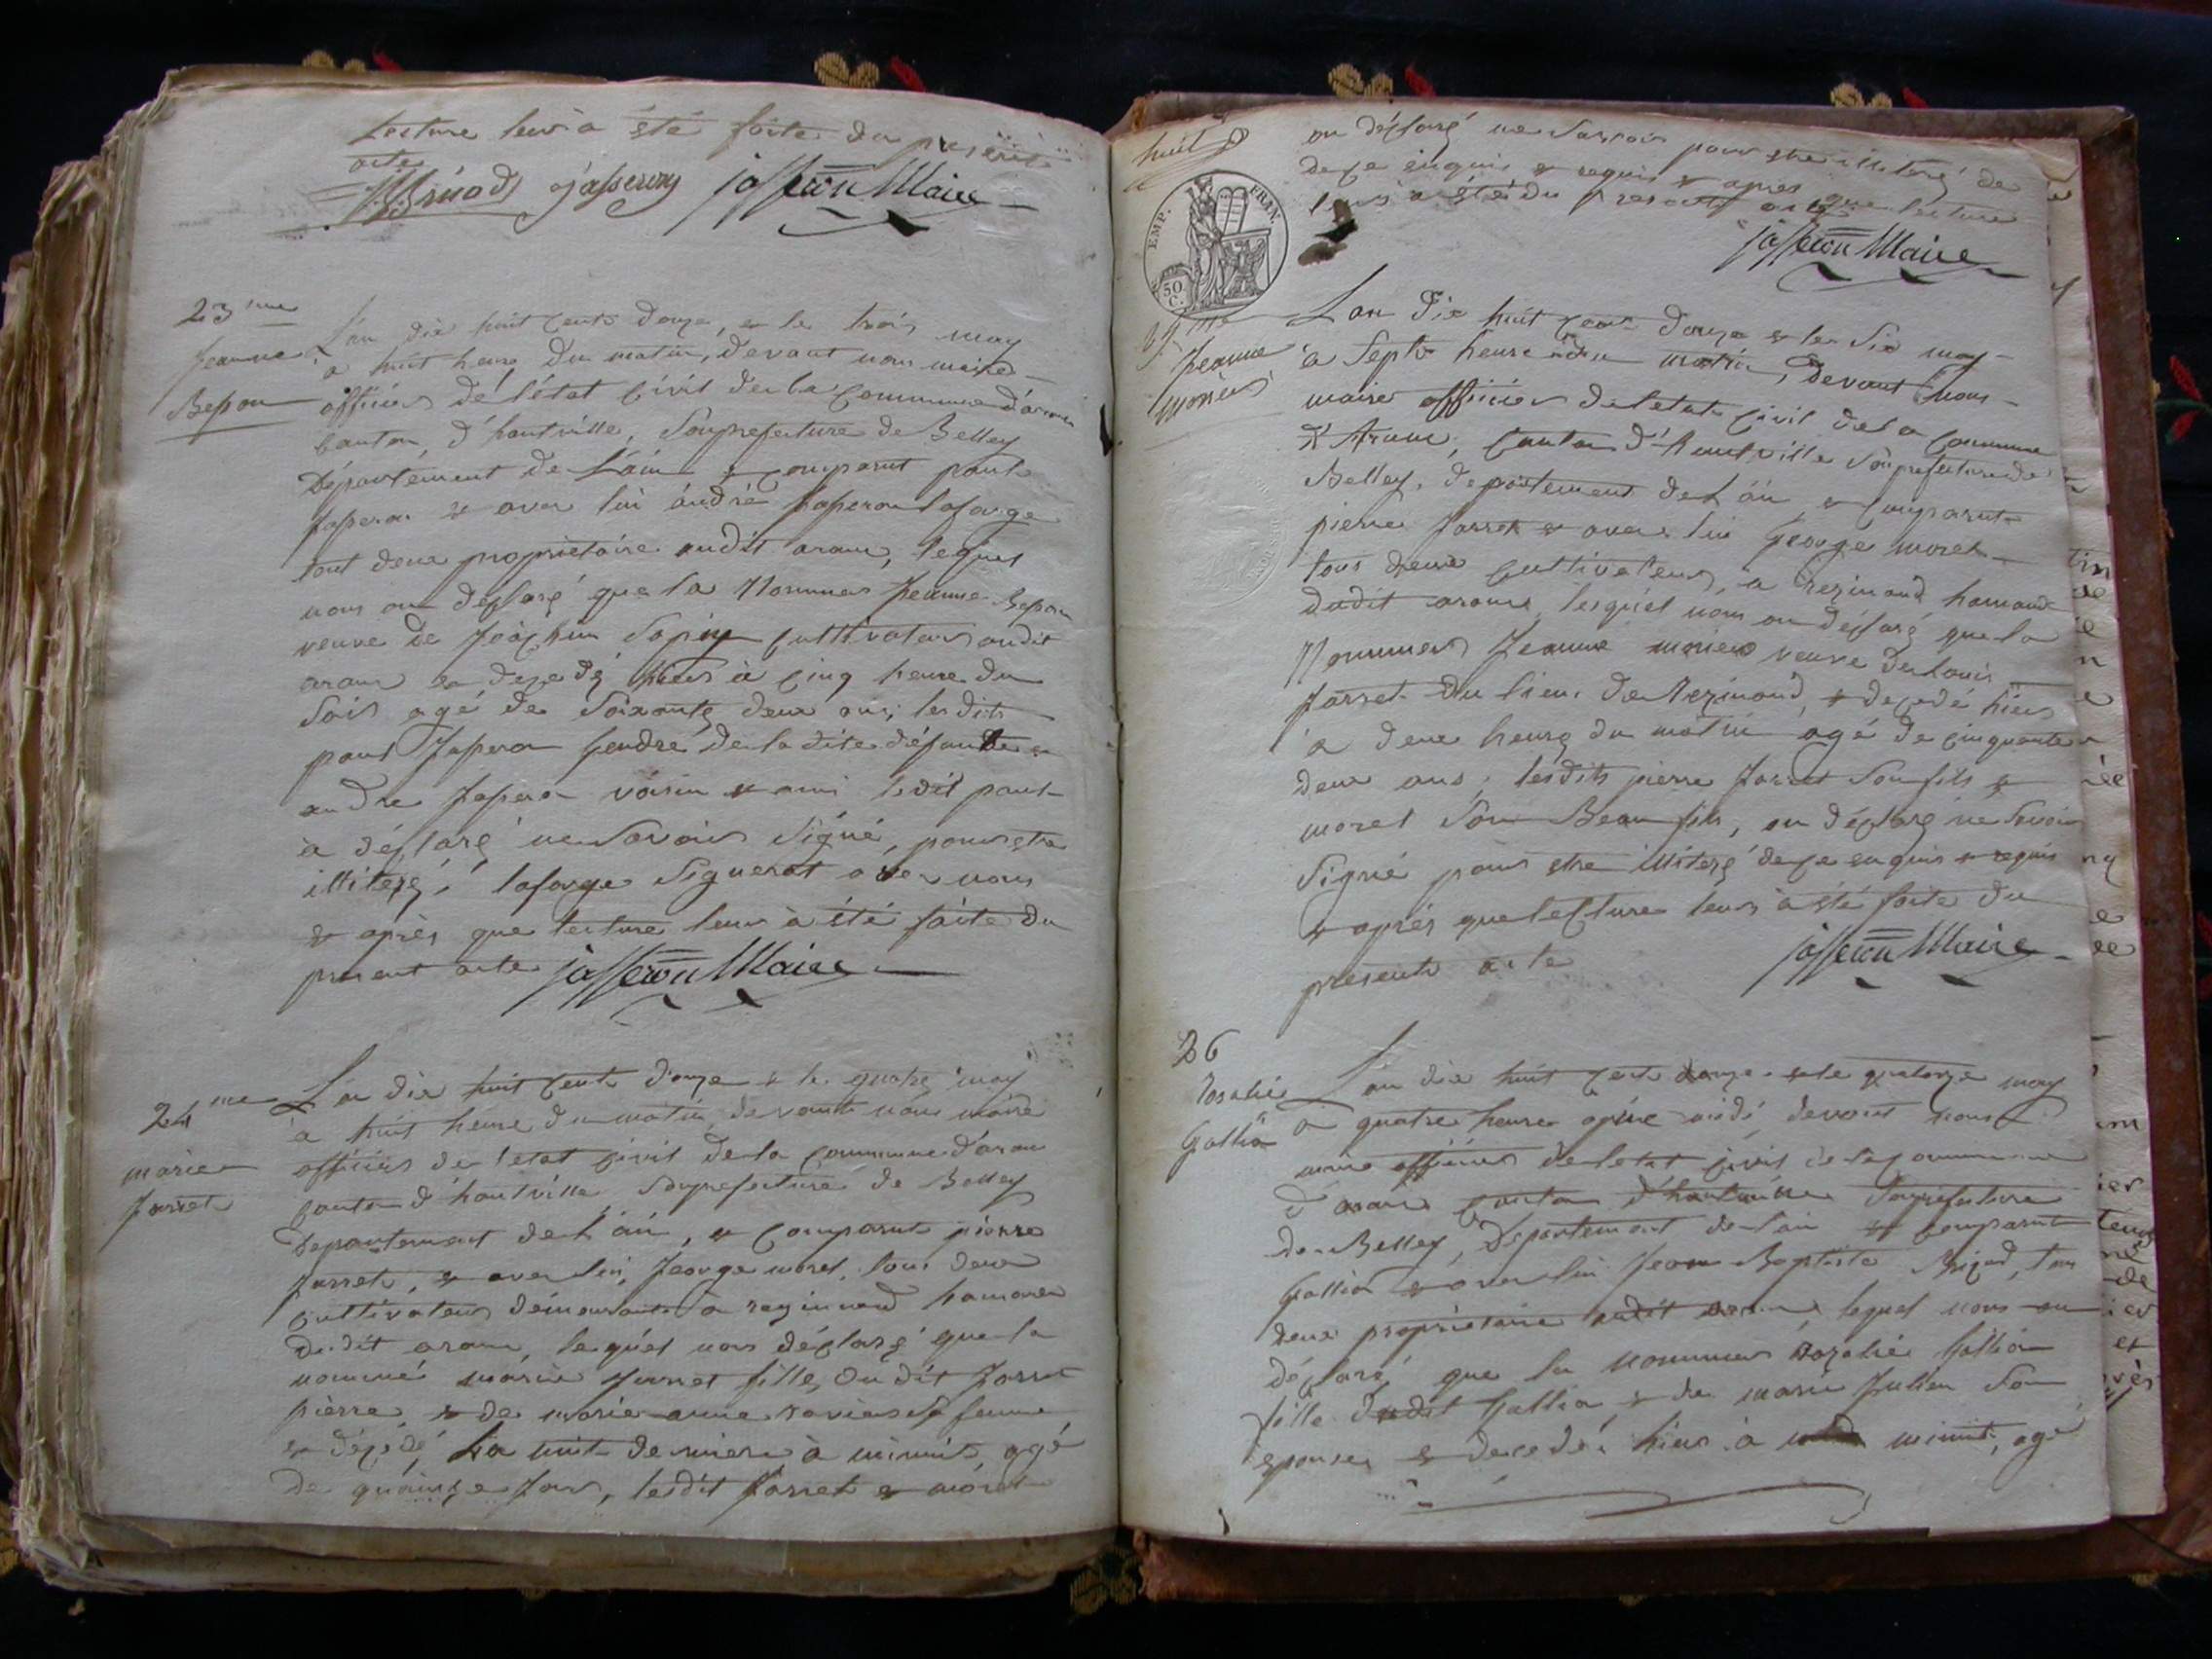 Lecture leur a été faite du présent
acte
Brisod Jasseron Jasseron Maire
23me
Jeanne
Beson
L'an dix huit cents douze, et le trois may
à huit heure du matin, devant nous maire
officier de l'état civil de la commune d'aranc
canton d'hautville, Souprefecture de Belley
Département de L'ain et comparut paul
Jaseron et avec lui andré Jaseron lafarge
tout deux proprietaire audit aranc, lequel
nous on déclaré que la Nommer Jeanne Beson
veuve de Joachim Sapin cultivateur audit
aranc et decedé hier à cinq heure du
Soir agé de Soixante deux ans, lesdits
paul Jaseron gendre de la dite défunte et
andre Jaseron voisin et ami ledit paul
à déclaré ne Savoir Signé, pour etre
illiteré, lafarge Signerat avec nous
et après que lecture leur à été faite du
present acte Jasseron Maire
24me
marie
Jarret
L'an dix huit cents douze et le quatre may
à huit heure du matin devant nous maire
officier de l'etat civil de la commune d'aranc
canton d'hautville Souprefecture de Belley
Departement de L'ain, et comparut pierre
Jarret, et avec lui, George moret, tous deux
cultivateur démeurant à reginand hamaux
dudit aranc, lequel nous déclaré que la
nommé marie Jarret fille, du dit Jarret
pièrre, et de marie anne Sa femme
et décédé, La nuit dernière à minuit, agé
de quainze Jour, ledit Jarret et moret
huit
EMP. FRAN.
50 C.
on déclaré ne Savoir pour etre illiteré de
dece enquis et requis et apres que lecture
leurs a été du present acte
Jasseron Maire
25me
Jeanne
monier
L'an dix huit cent douze et le Six may
à Sept heure du matin, Devant nous
maire officier de letat civil de la commune
d'Aranc, Canton d'hautville Souprefecture de
Belley, departement de L'ain, et comparut
pierre Jarret et avec lui George moret
tous deux cultivateur, a reginand hamaud
dudit aranc, lesquel nous on déclaré que la
Nommer Jeanne monier veuve de Louis
Jarret du lieu de Reginand, et decedé hier
à deux heure du matin agé de cinquante
deux ans, lesdits pierre Jarret Son fils et
moret Son Beau fils, on déclaré ne Savoir
Signé pour etre illiteré dece enquis et requis
et après que lecture leurs à été faite du
present acte Jasseron Maire
26
rosalie
Gallia
L'an dix huit cent douze et le quatorze may
à quatre heure après midi, devant nous
maire officier de letat civil de la commune
d'aranc canton d'hautville Souprefecture
de Belley, Departement de lain et comparut
Gallia et avec lui Jean Baptiste Brisod, tous
deux proprietaire audit aranc, lequel nous on
déclaré que la nommer rozalie Gallia
fille dudit Gallia, et de marie Julien Son
epouse, et decedé hier à minuit, agé